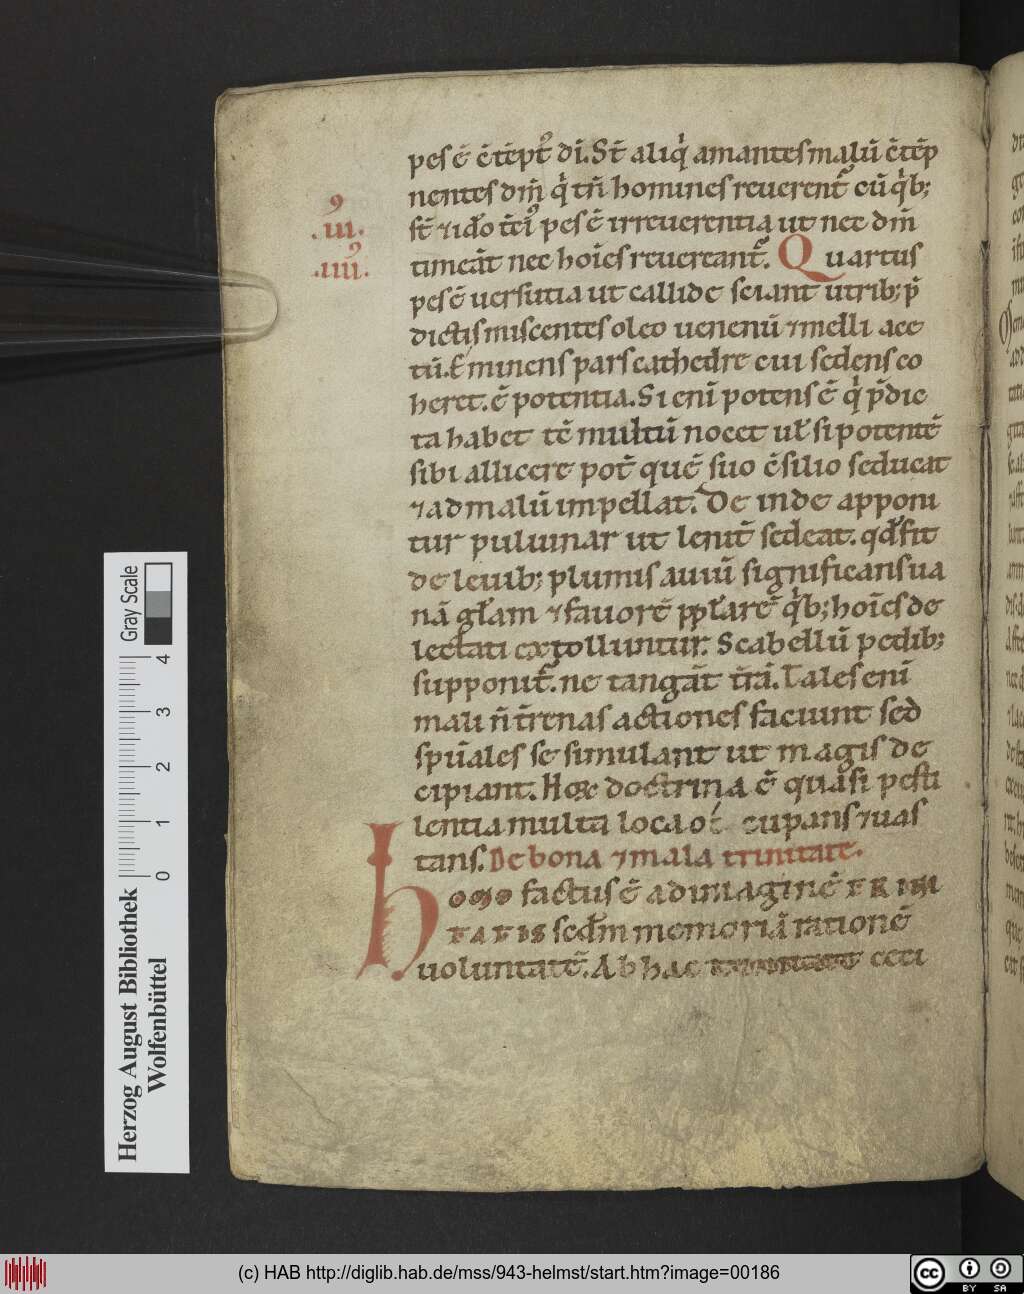 pes ē ɔ̄tēpt᷒ dī. St̄ aliqͥ amantes malū ɔ̄tēp
nentes dm̄ qͥ tn̄ homines reuerent᷒ cū qͥb;
st̄ ⁊ iđo t̄ci᷒ pes ē irreuerentia ut nec dm̄
timeāt nec hoīes reuereant᷒. Quartus
.iii.
.iiii.
pes ē uersutia ut callide sciant utrib; p̄
dictis miscentes oleo uenenū ⁊ melli ace
tū. Eminens pars cathedre cui sedens co
heret. ē potentia. Si enī potens ē qͥ p̄dic
ta habet tc̄ multū nocet uł si potentē
sibi allicere pot̄ quē suo ɔ̄silio seducat
⁊ ad malū impellat. De inde apponi
tur puluinar ut lenit̄ sedeat. qđ fit
de leuib; plumis auiū significans ua
nā głam ⁊ fauorē ppłarē qͥb; hoīes de
lectati extolluntur. Scabellū pedib;
supponit᷒. ne tangāt t̄rā. Tales enī
mali n̄ t̄renas actiones faciunt sed
spūales se simulant ut magis de
cipiant. Hec doctrina ē quasi pesti
lentia multa loca oc cupans ⁊ uas
tans. De bona ⁊ mala trinitate.
homo factus ē ad imaginē TRINI
TATIS secđm memoriā rationē
uoluntatē. Ab hac trinitate ceci
Herzog August Bibliothek
Wolfenbüttel
0 1 2 3 4
Gray Scale
(c) HAB http://diglib.hab.de/mss/943-helmst/start.htm?image=00186
cc BY SA